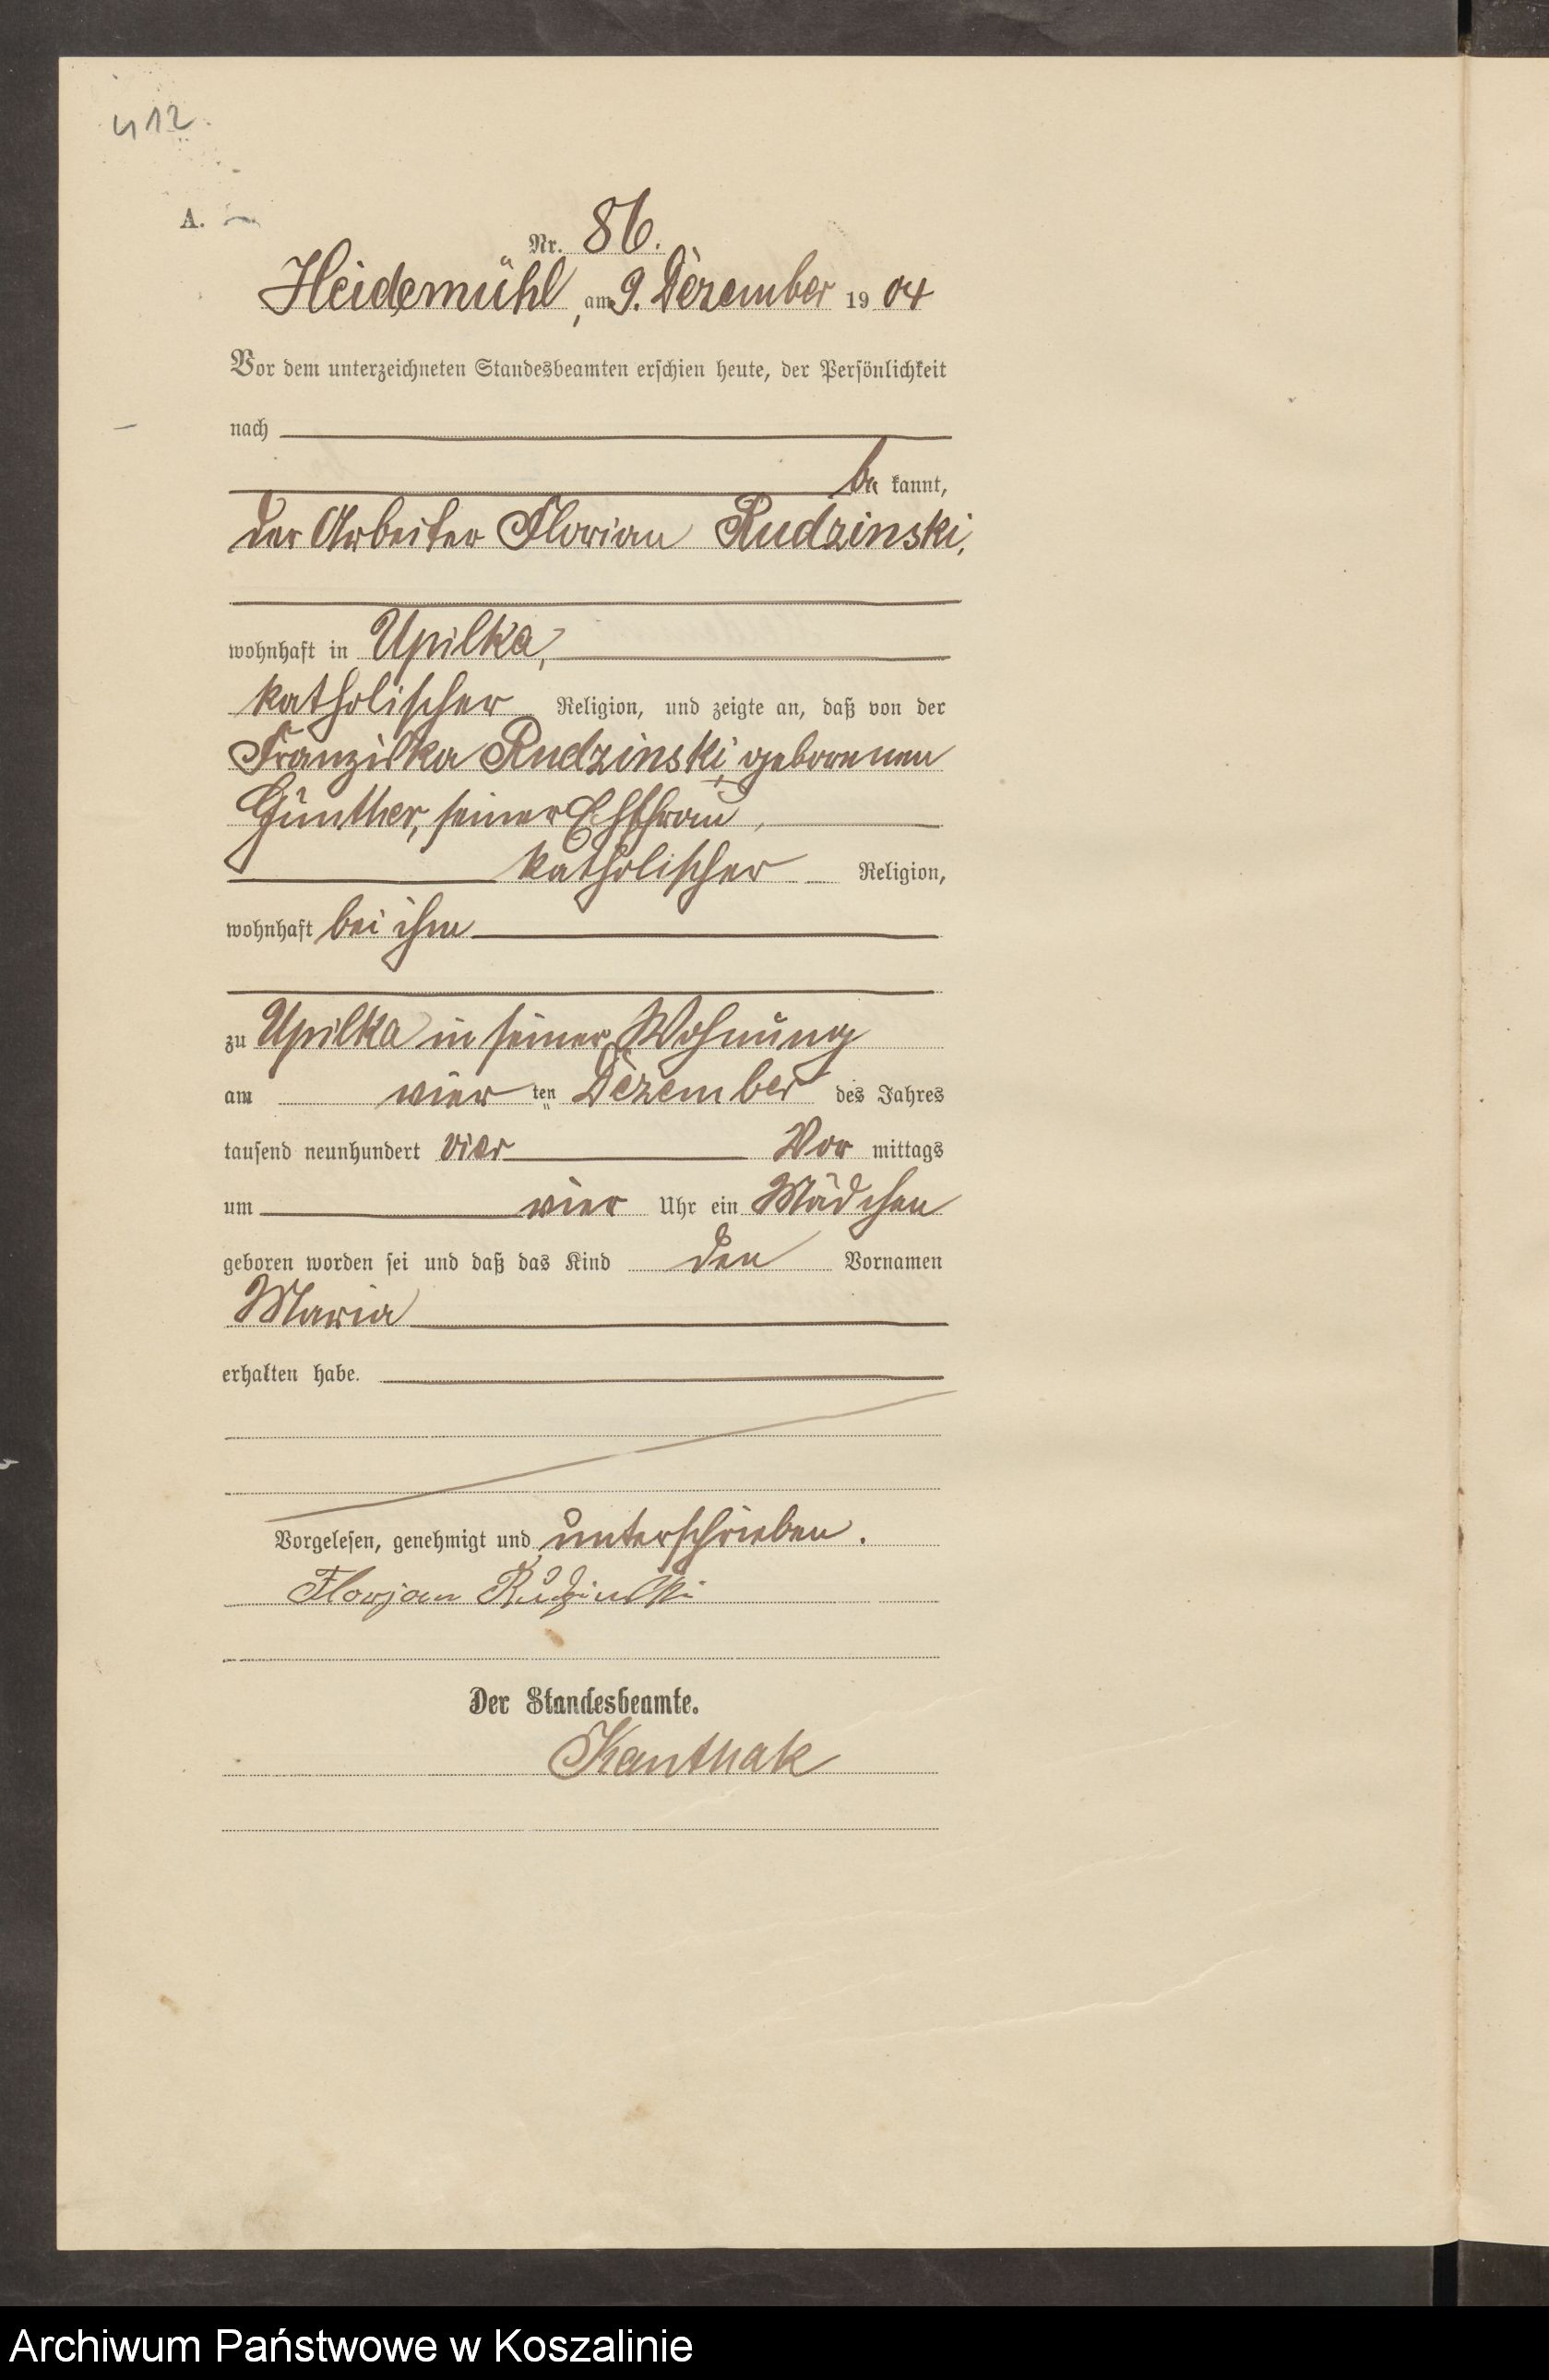 412.
A.
Nr. 86.
Heidemühl, am 9. Dezember 1904
Vor dem unterzeichneten Standesbeamten erschien heute, der Persönlichkeit
nach
be kannt,
der Arbeiter Florian Rudzinski,
wohnhaft in Upilka,
katholischer Religion, und zeigte an, daß von der
Franziska Rudzinski, geborenen
Günther, seiner Ehefrau,
katholischer Religion,
wohnhaft bei ihm
zu Upilka in seiner Wohnung
am vier ten Dezember des Jahres
tausend neunhundert vier Vor mittags
um vier Uhr ein Mädchen
geboren worden sei und daß das Kind den Vornamen
Maria
erhalten habe.
Vorgelesen, genehmigt und unterschrieben.
Florjan Rudzinski
Der Standesbeamte.
Kanthak
Archiwum Państwowe w Koszalinie